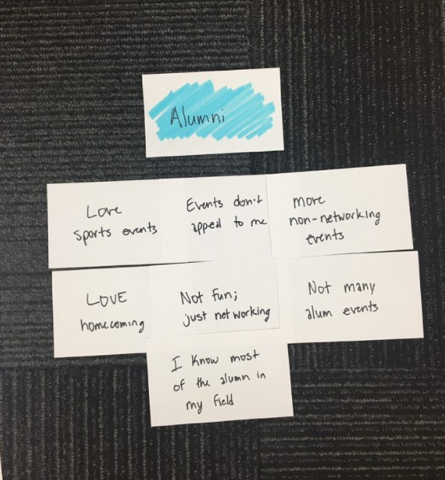 Alumni
Love
sports events
Events don't
appeal to me
more
non-networking
events
LOVE
homecoming
Not fun;
just networking
Not many
alum events
I know most
of the alumn in
my field